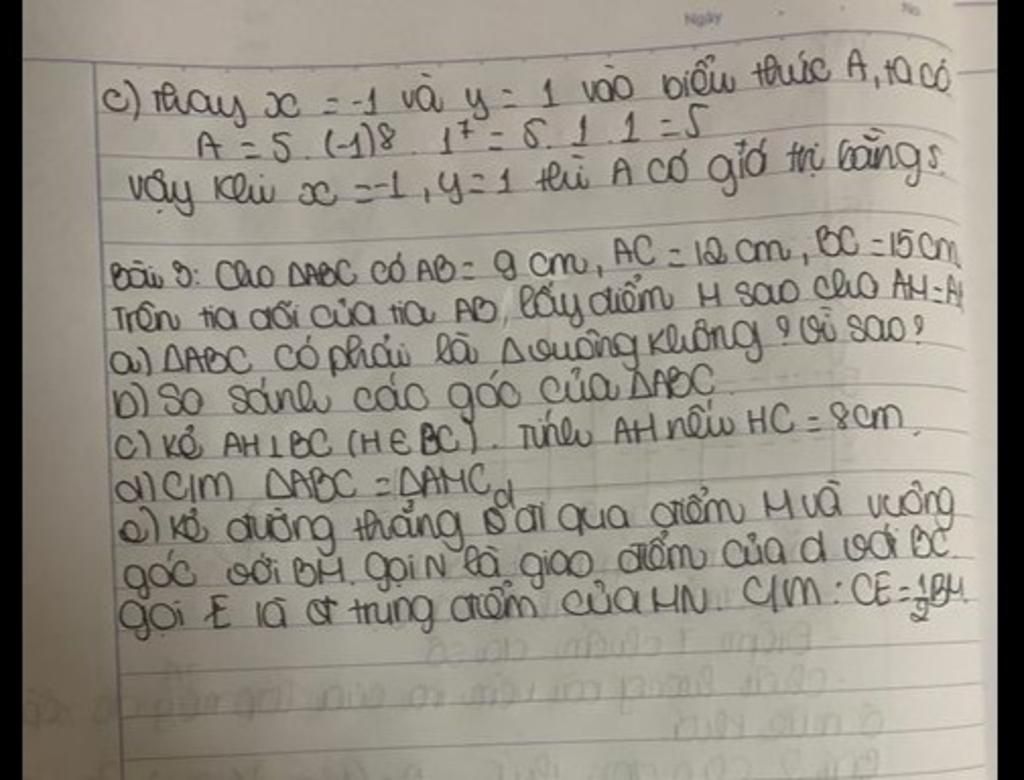 Ngày
No
c) Thay x = -1 và y = 1 vào biểu thức A, ta có
A = 5 . (-1)8 . 1⁷ = 5 . 1 . 1 = 5
Vậy khi x = -1, y = 1 thì A có giá trị bằng 5.
Bài 3: Cho ΔABC có AB = 9 cm, AC = 12 cm, BC = 15 cm
Trên tia đối của tia AB, lấy điểm M sao cho AM = A
a) ΔABC có phải là Δ vuông không? Vì sao?
b) So sánh các góc của ΔABC
c) Kẻ AH ⊥ BC (H ∈ BC). Tính AH nếu HC = 8 cm.
d) C/m ΔABC = ΔAMC
e) Kẻ đường thẳng d đi qua điểm M và vuông
góc với BM. Gọi N là giao điểm của d với BC.
gọi E là trung điểm của MN. C/m : CE = ½BM.